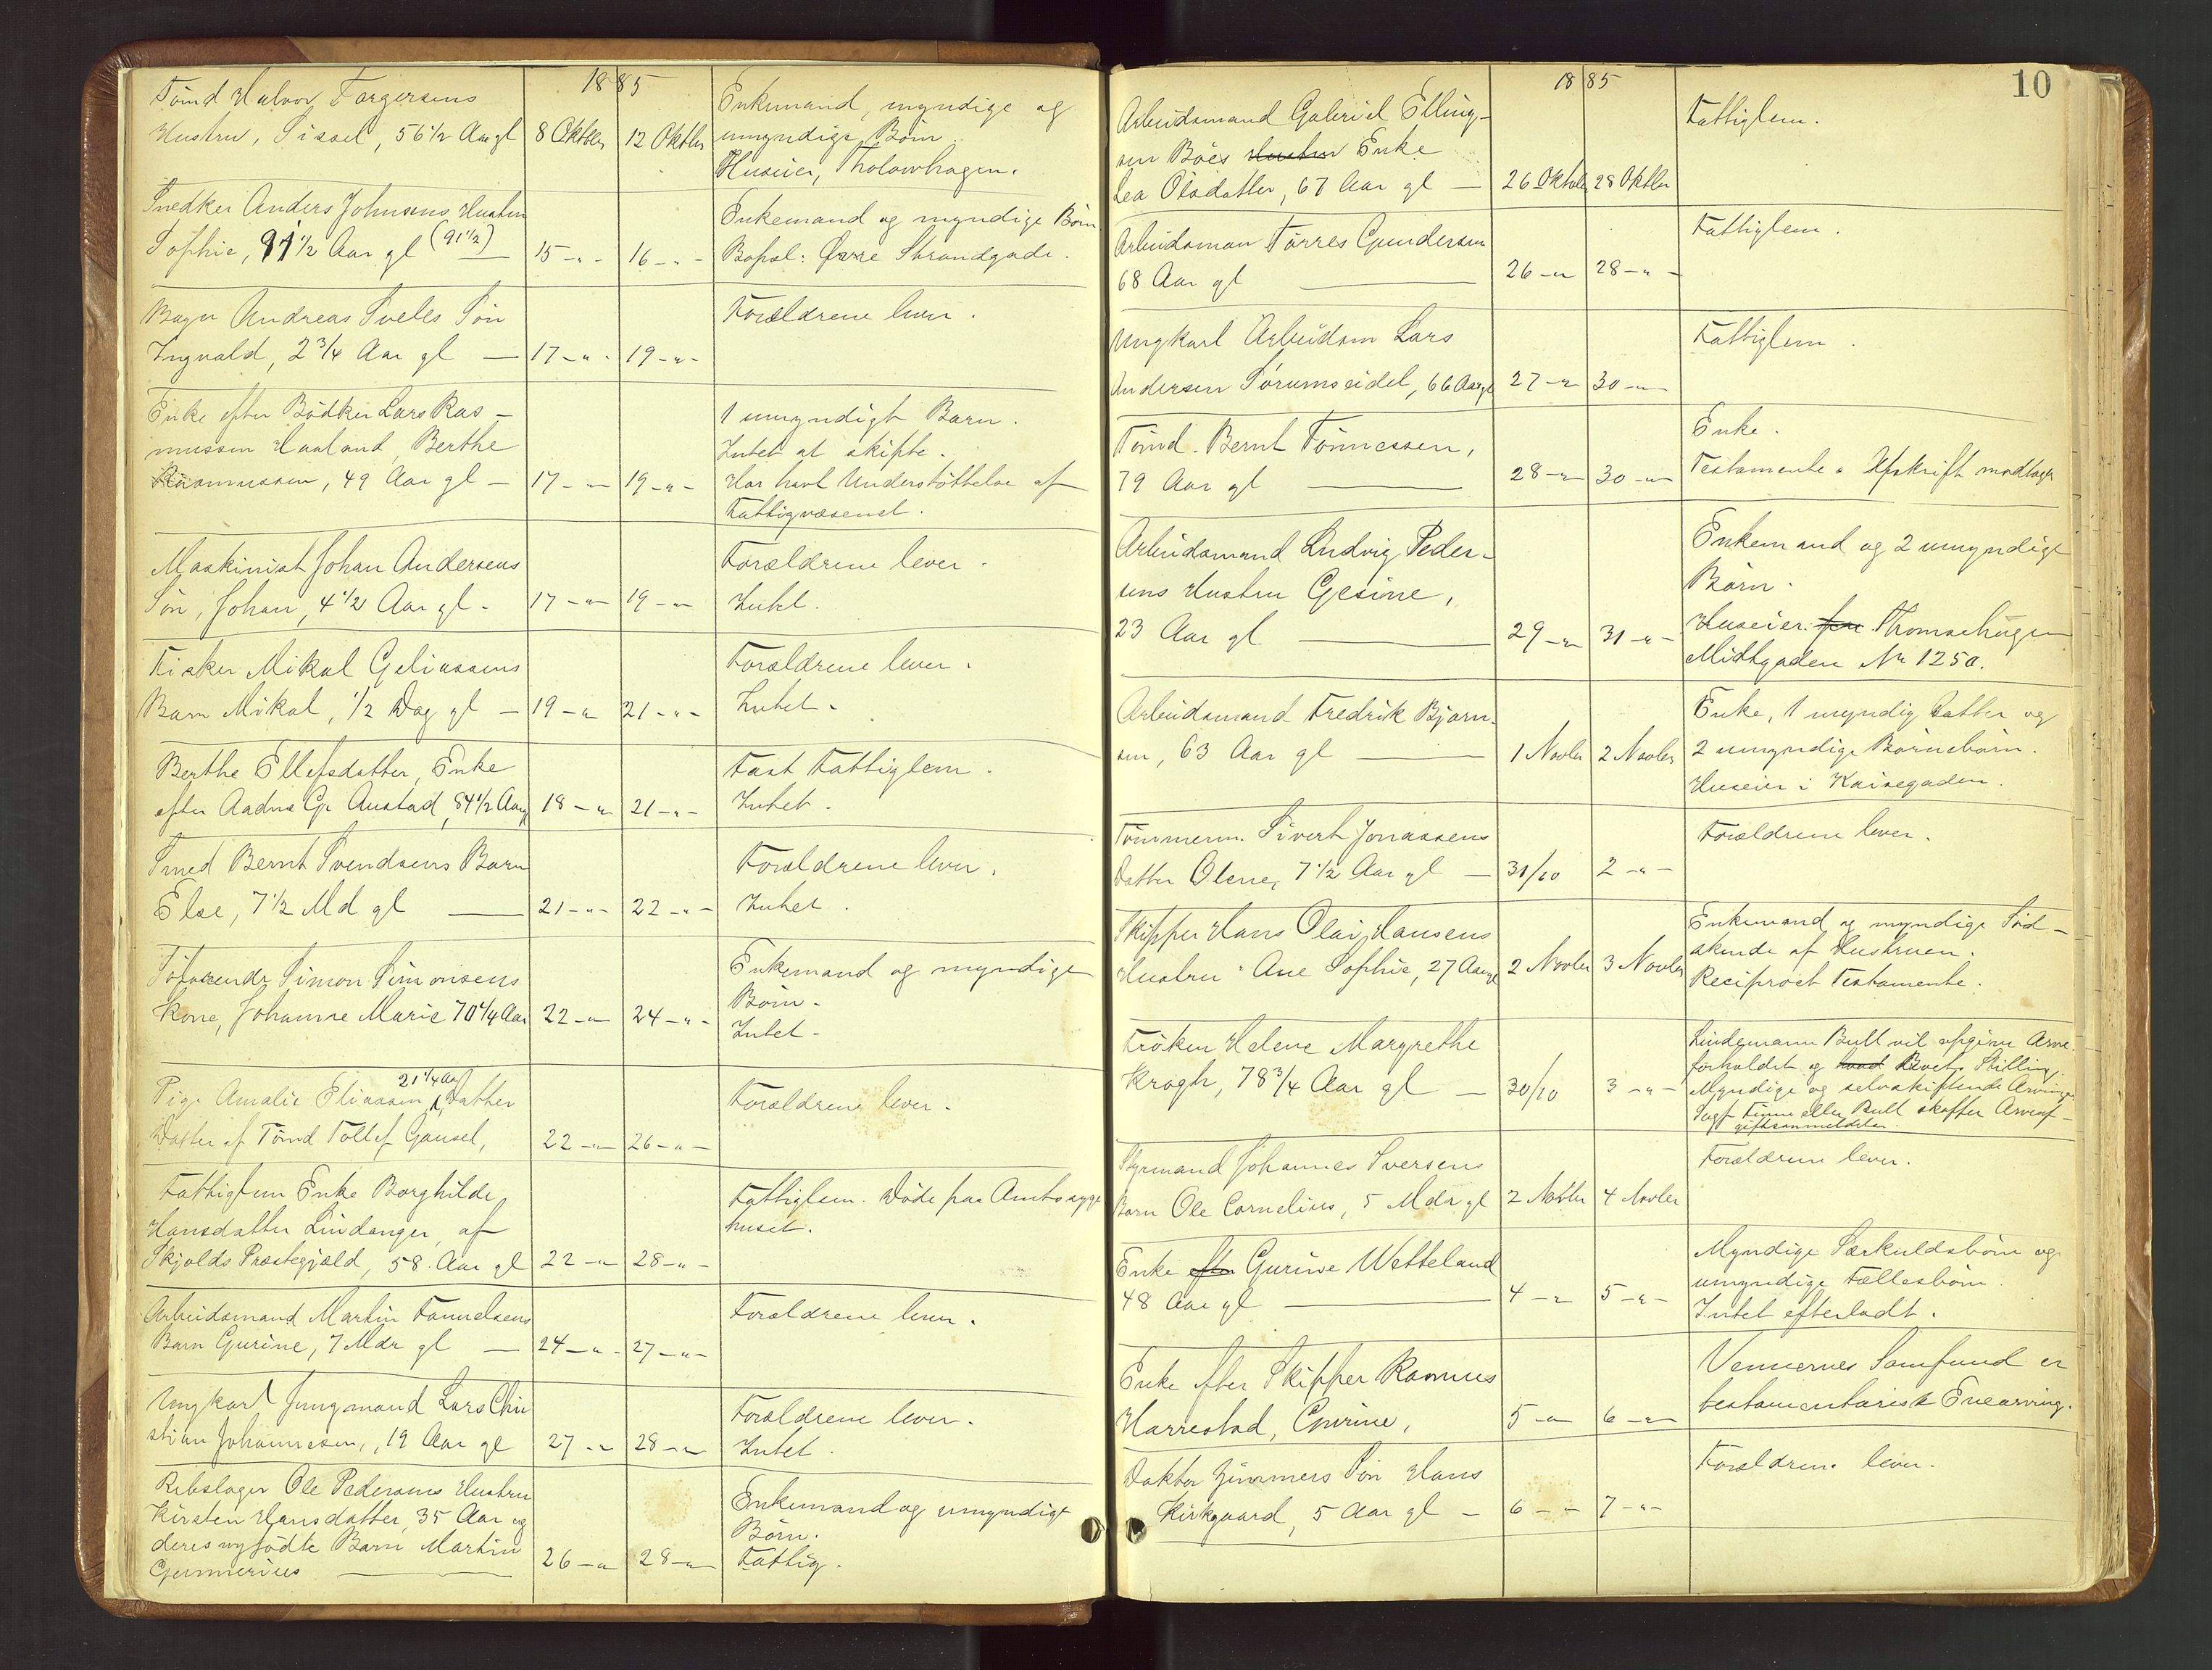 1885
Tømd Halvor Torgersens
Hustru, Sissel, 56 1/2 Aar gl 8 Oktber 12 Oktber
Enkemand, myndige og
umyndige Børn.
Huseier, Tholowhagen.
Snedker Anders Johnsens Hustru
Sophie, 91 1/2 Aar gl (91 1/2) 15 - " - 16 - " -
Enkemand og myndige Børn
Bopæl: Øvre Strandgade.
Bager Andreas Sveles Søn
Ingvald, 2 3/4 Aar gl — 17 - " - 19 - " -
Forældrene lever.
Enke efter Bødker Lars Ras-
mussen Haaland, Berthe
Rasmussen, 49 Aar gl — 17 - " - 19 - " -
1 umyndigt Barn.
Intet at skifte.
Har havt Understøttelse af
Fattigvæsenet.
Maskinist Johan Andersens
Søn, Johan, 4 1/2 Aar gl - 17 - " - 19 - " -
Forældrene lever.
Intet.
Fisker Mikal Geliassens
Barn Mikal, 1/2 Dag gl — 19 - " - 21 - " -
Forældrene lever.
Intet.
Berthe Ellefsdatter, Enke
efter Aadne Gr Austad, 84 1/2 Aar gl 18 - " - 21 - " -
Fast Fattiglem.
Intet.
Smed Bernt Svendsens Barn
Else, 7 1/2 Md gl — 21 - " - 22 - " -
Forældrene lever.
Intet.
Simon Simonsens
Kone, Johanne Marie 70 1/4 Aar 22 - " - 24 - " -
Enkemand og myndige
Børn.
Intet.
21 1/4 Aar
Pige Amalie Eliassen, Datter
Datter af Tømd Tollef Gausel, 22 - " - 26 - " -
Forældrene lever.
Fattiglem Enke Borghilde
Hansdatter Lindanger, af
Skjolds Præstegjæld, 58 Aar gl 22 - " - 28 - " -
Fattiglem. Døde paa Amtssyge
huset.
Arbeidsmand Martin Tannelsens
Barn Gurine, 7 Mdr gl — 24 - " - 27 - " -
Forældrene lever.
Ungkarl Jungmand Lars Chri
stian Johannesen, 19 Aar gl 27 - " - 28 - " -
Forældrene lever.
Intet.
Rebslager Ole Pedersens Hustru
Kirsten Hansdatter, 35 Aar og
deres nyfødte Barn Martin
Gunnerius — 26 - " - 28 - " -
Enkemand og umyndigt
Børn.
Fattig.
10
1885
Arbeidsmand Gabriel Elling-
sen Bøes Hustru Enke
Lea Olsdatter, 67 Aar gl — 26 Oktober 28 Oktber
Fattiglem.
Arbeidsman Tørres Gundersen
68 Aar gl — 26 - " - 28 - " -
Fattiglem.
Ungkarl Arbeidsm Lars
Andersen Sørumseidet, 66 Aar gl 27 - " - 30 - " -
Fattiglem.
Tømd. Bernt Tønnessen,
79 Aar gl — 28 - " - 30 - " -
Enke.
Testamente. Afskrift modtaget
Arbeidsmand Ludvig Peder-
sens Hustru Gesine,
23 Aar gl — 29 - " - 31 - " -
Enkemand og 2 umyndige
Børn.
Huseier paa Thomsehagen
Midtgaden Nr 1250.
Arbeidsmand Fredrik Bjørn-
sen, 63 Aar gl — 1 Novber 2 Novber
Enke, 1 myndig Datter og
2 umyndige Børnebørn.
Huseier i Kaisegaden.
Tømmerm. Sivert Jonassens
Datter Olene, 7 1/2 Aar gl — 31/10 2 - " -
Forældrene lever.
Skipper Hans Olai Hansens
Hustru Ane Sophie, 27 Aar gl 2 Novber 3 Novber
Enkemand og myndige Sød-
skende af Hustruen.
Reciproct Testamente.
Frøken Helene Margrethe
Krogh, 78 3/4 Aar gl — 30/10 3 - " -
Lindemann Bull vil opgive Arve-
forholdet og
Myndige og selvskiftende Arvinger
Sagf. eller Bull skaffer Arveaf-
giftsanmeldelse
Styrmand Johannes Iversens
Barn Ole Cornelius, 5 Mdr gl 2 Novber 4 Novber
Forældrene lever.
Enke efter Gurine Wetteland
48 Aar gl — 4 - " - 5 - " -
Myndige Særkuldsbørn og
umyndige Fællesbørn.
Intet efterladt.
Enke efter Skipper Rasmus
Harrestad, Gurine, 5 - " - 6 - " -
Vennernes Samfund er
testamentarisk Enearving.
Doktor Zimmers Søn Hans
Kirkgaard, 5 Aar gl — 6 - " - 7 - " -
Forældrene lever.